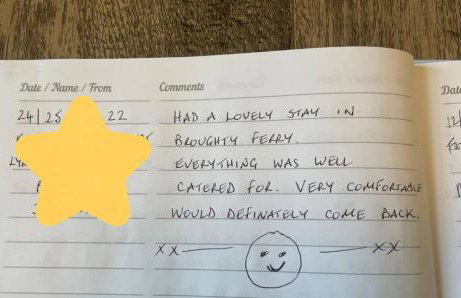 Date / Name / From
Comments
24/25 22
HAD A LOVELY STAY IN
BROUGHTY FERRY.
EVERYTHING WAS WELL
CATERED FOR. VERY COMFORTABLE
WOULD DEFINATELY COME BACK.
XX XX
Date